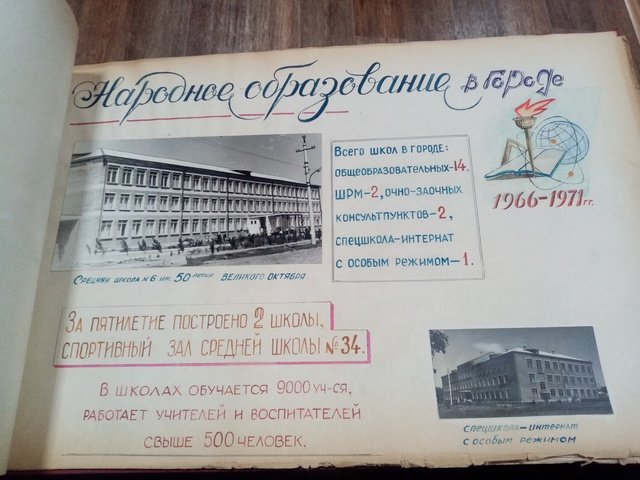 Народное образование в городе
1966-1971 гг.
Всего школ в городе:
общеобразовательных-14.
ШРМ-2, очно-заочных
консультпунктов-2,
спецшкола-интернат
с особым режимом-1.
Средняя школа №6 им. 50 летия Великого Октября
За пятилетие построено 2 школы,
спортивный зал средней школы №34.
В школах обучается 9000 уч-ся,
работает учителей и воспитателей
свыше 500 человек.
спецшкола-интернат
с особым режимом